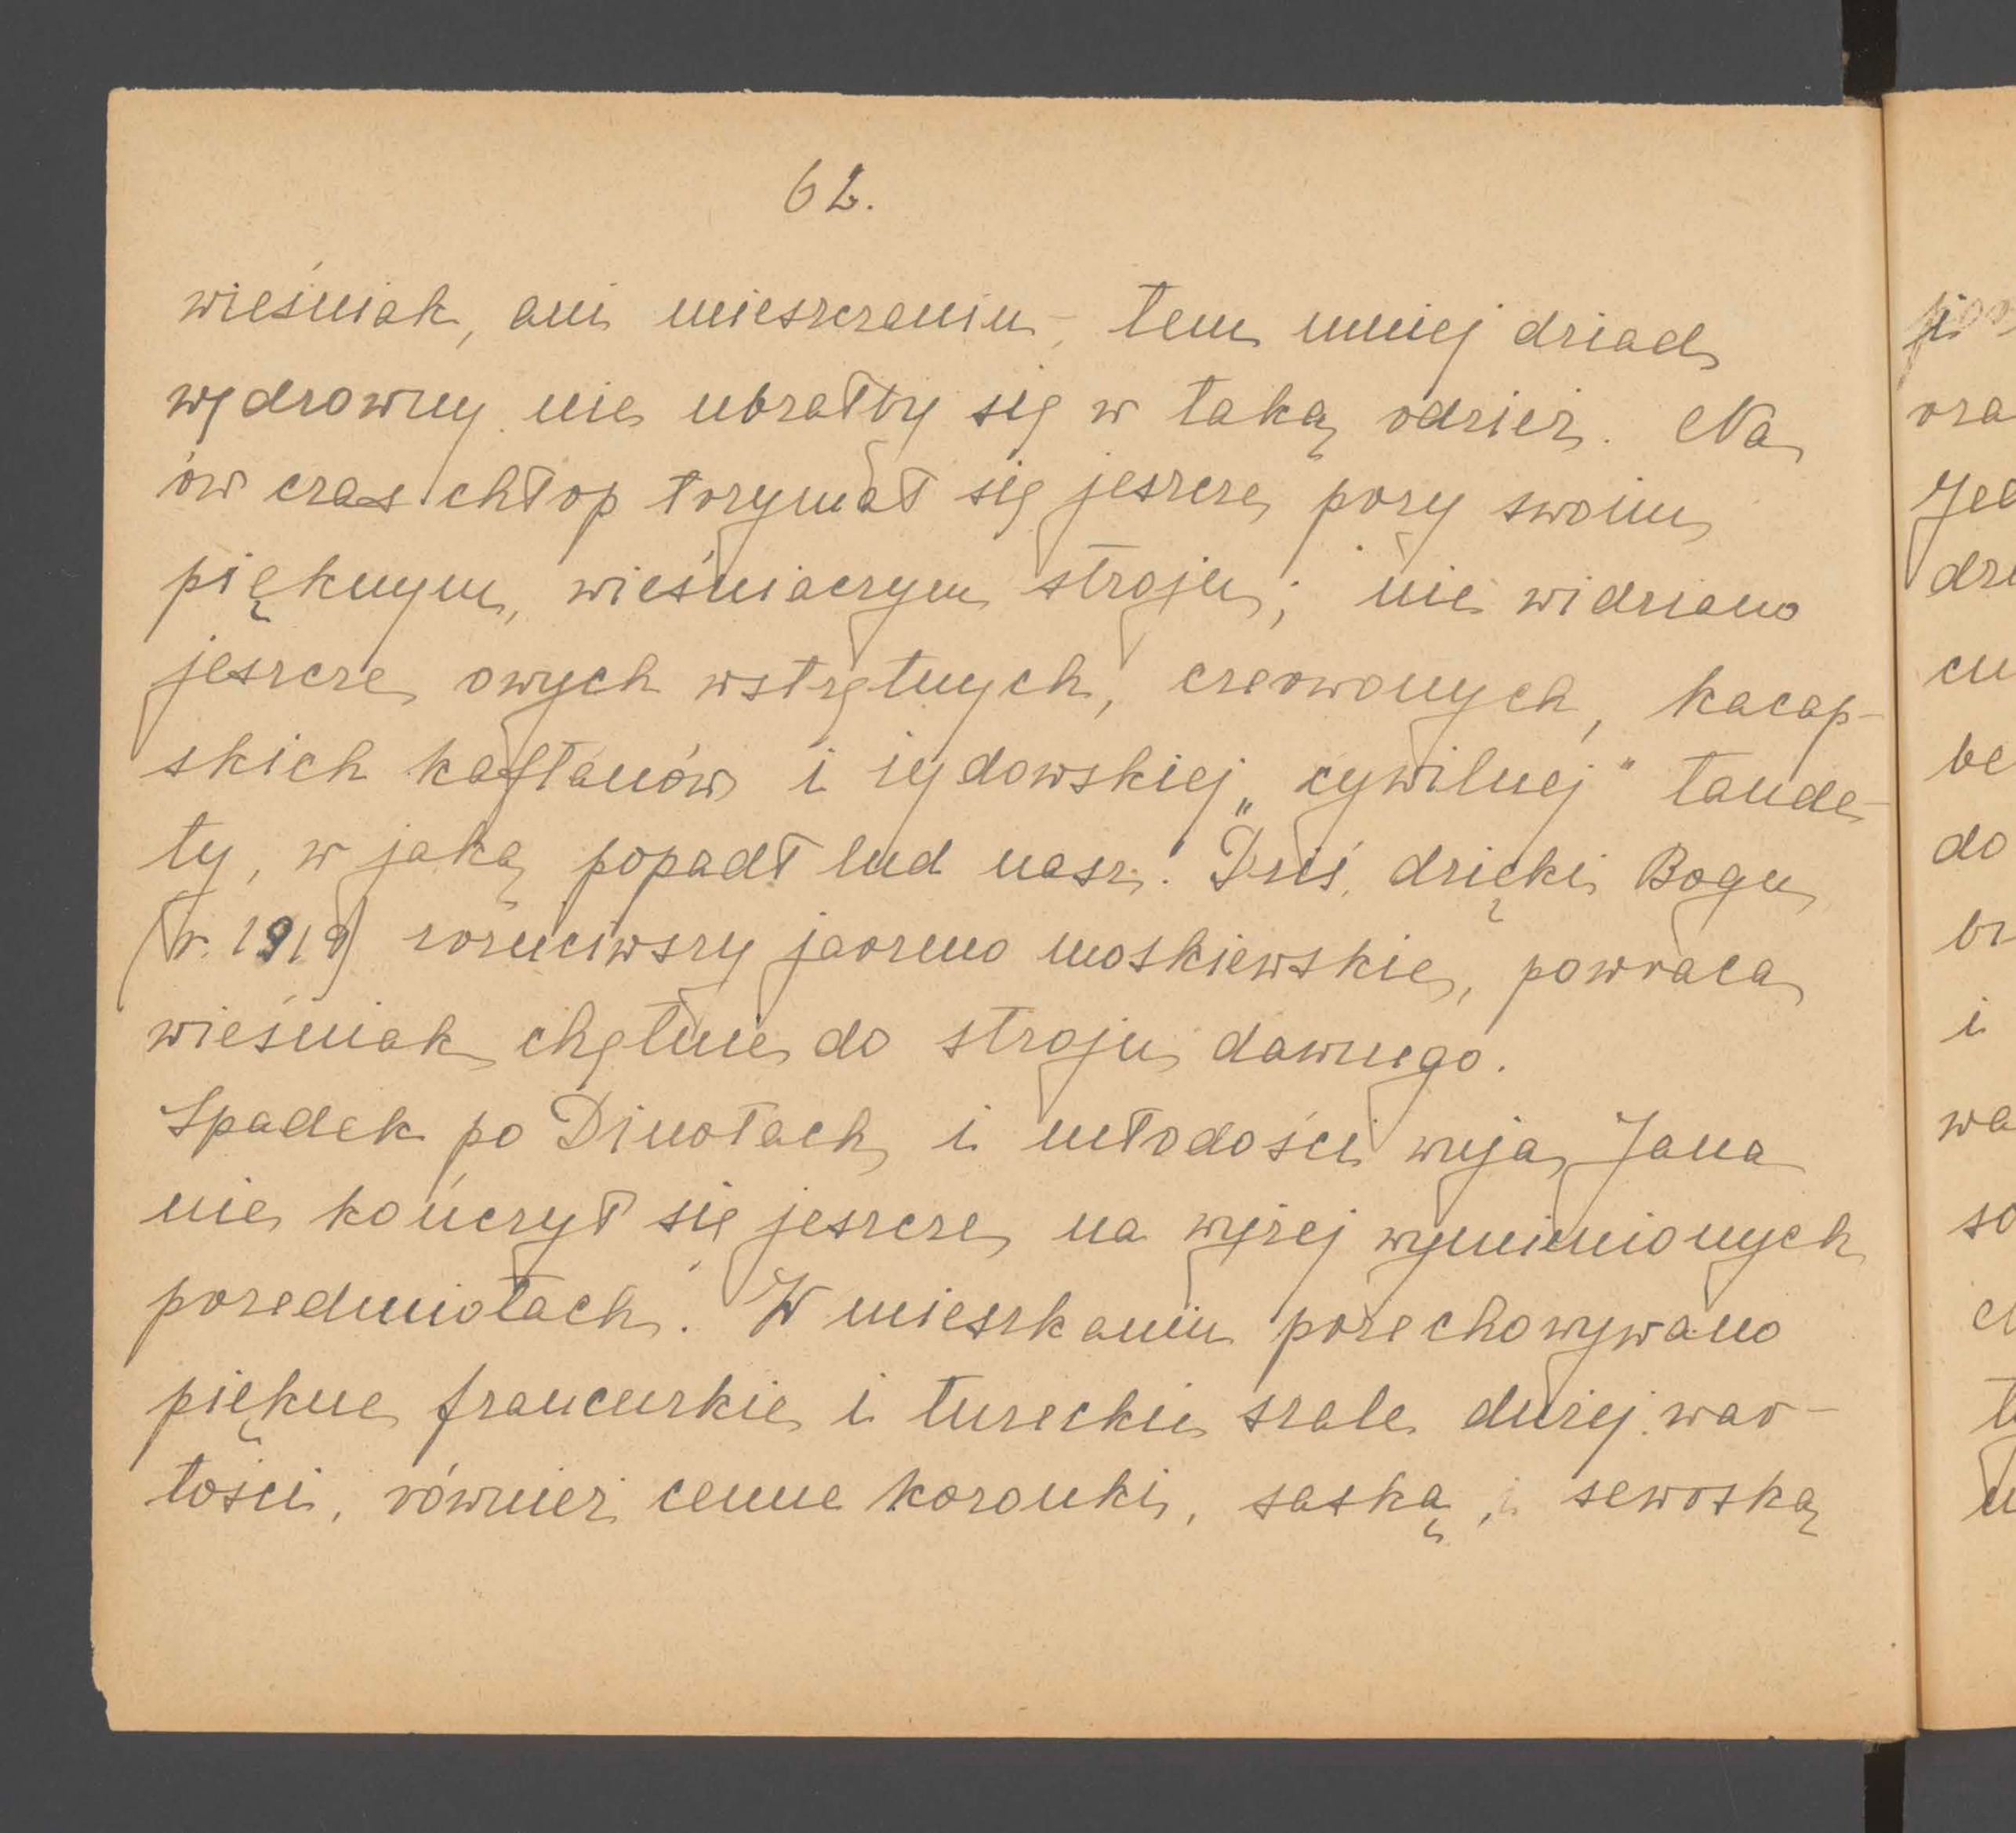 62.
wieśniak, ani mieszczanin, tem mniej dziad
wędrowny nie ubrałby się w taką odzież. Na
ów czas chłop trzymał się jeszcze przy swoim
pięknym, wieśniaczym stroju; nie widziano
jeszcze owych wstrętnych, czerwonych, kacap-
skich kaftanów i żydowskiej „cywilnej" tande-
ty, w jaką popadł lud nasz. Dziś, dzięki Bogu
(r. 1919) zrzuciwszy jarzmo moskiewskie, powraca
wieśniak chętnie do stroju dawnego.
Spadek po Dinotach i młodości wuja Jana
nie kończył się jeszcze na wyżej wymienionych
przedmiotach. W mieszkaniu przechowywano
piękne francuzkie i tureckie szale dużej war-
tości, również cenne koronki, saską i sewrską
ora
do
i
wa